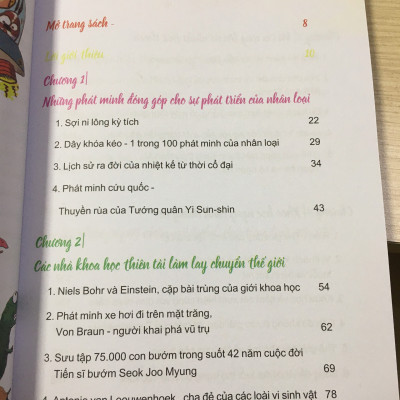 Mở trang sách - 8
Lời giới thiệu 10
Chương 1|
Những phát minh đóng góp cho sự phát triển của nhân loại
1. Sợi ni lông kỳ tích 22
2. Dây khóa kéo - 1 trong 100 phát minh của nhân loại 29
3. Lịch sử ra đời của nhiệt kế từ thời cổ đại 34
4. Phát minh cứu quốc -
Thuyền rùa của Tướng quân Yi Sun-shin 43
Chương 2|
Các nhà khoa học thiên tài làm lay chuyển thế giới
1. Niels Bohr và Einstein, cặp bài trùng của giới khoa học 54
2. Phát minh xe hơi đi trên mặt trăng,
Von Braun - người khai phá vũ trụ 62
3. Sưu tập 75.000 con bướm trong suốt 42 năm cuộc đời
Tiến sĩ bướm Seok Joo Myung 69
4. Antonie van Leeuwenhoek, cha đẻ của các loài vi sinh vật 78